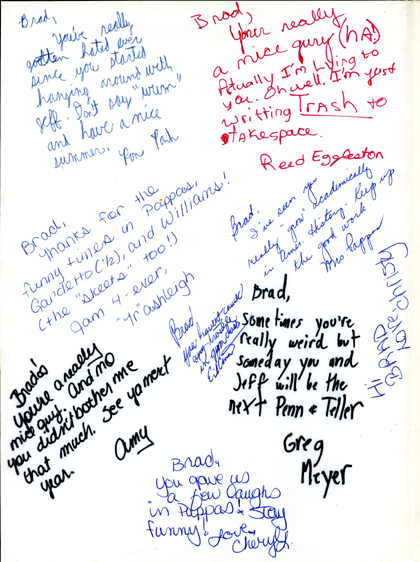 Brad,
You've really
gotten hated ever
since you started
hanging around with
Jeff. Don't say "wurm"
and have a nice
summer.
Brad,
Your really
a nice guy (HA!)
Actually I'm Lying to
you. Oh well. I'm just
writting TRASH to
takespace.
Reed Eggleston
Brad,
Thanks for the
funny times in Pappas,
Gardetto (½), and Williams!
(the "skeets" too!)
Jam 4-ever,
Ashleigh
Brad,
I've seen you
really "grow" academically
in Amer. History. Keep up
the good work!
Mrs. Pappas
Hi
BRAD
Love Christy
Brad
you
Brad,
Sometimes you're
really weird but
someday you and
Jeff will be the
next Penn & Teller
Greg
Meyer
Brad!
You're a really
nice guy. And no
you didn't bother me
that much. See ya next
year.
Amy
Brad,
you gave us
a few laughs
in Pappas! Stay
funny!
Love
Cheryl